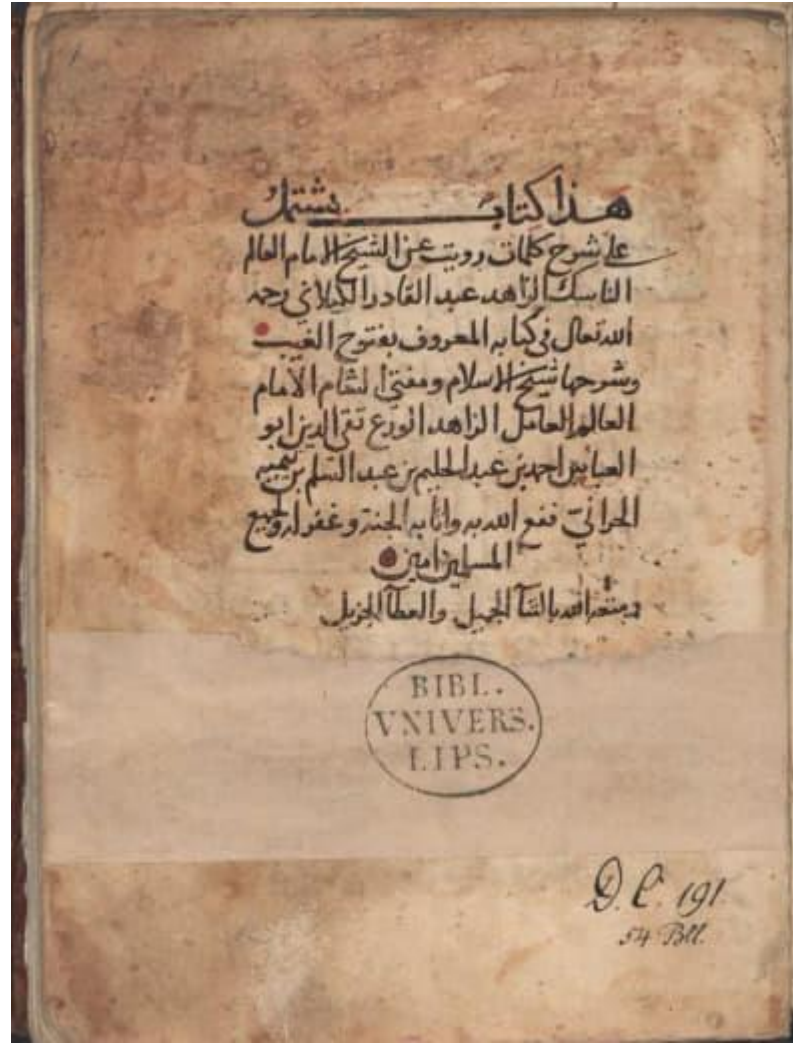 هذا كتاب يشتمل
على شرح كلمات رويت عن الشيخ الامام العالم
الناسك الزاهد عبد القادر الكيلاني رحمه
الله تعالى في كتابه المعروف بفتوح الغيب
وشرحها شيخ الاسلام ومفتي الشام الامام
العالم العامل الزاهد الورع تقي الدين ابو
العباس احمد بن عبد الحليم بن عبد السلم بن تيميه
الحراني نفع الله به واثابه الجنة وغفر له ولجميع
المسلمين امين
ومتعه الله بالثنآ الجميل والعطآ الجزيل
BIBL.
VNIVERS.
LIPS.
D. C. 191
54 Bll.